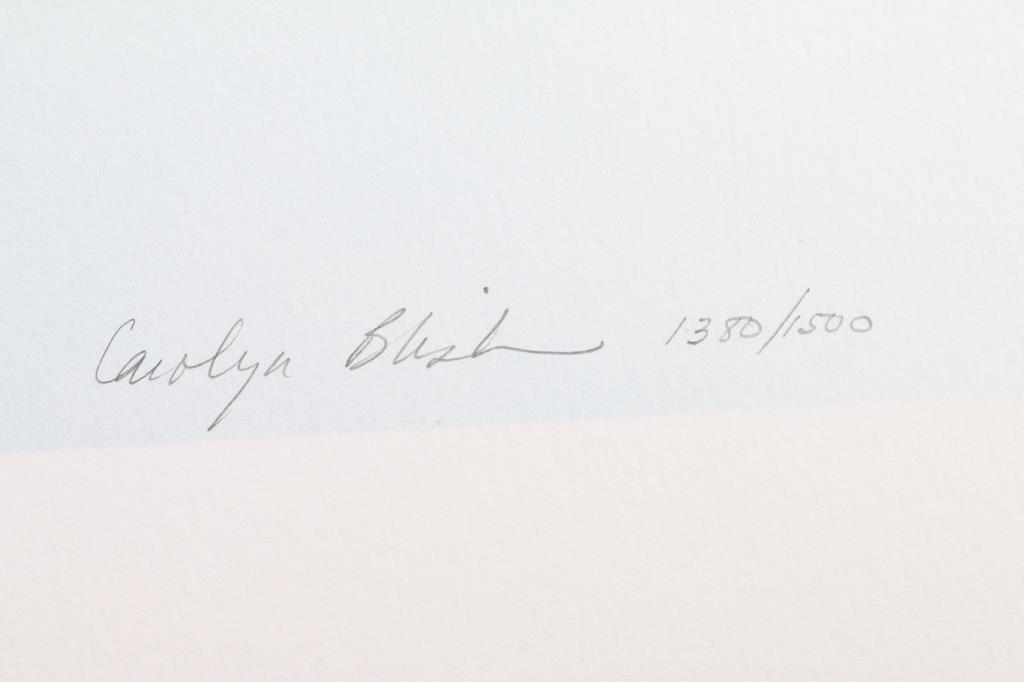 Carolyn Blish 1380/1500